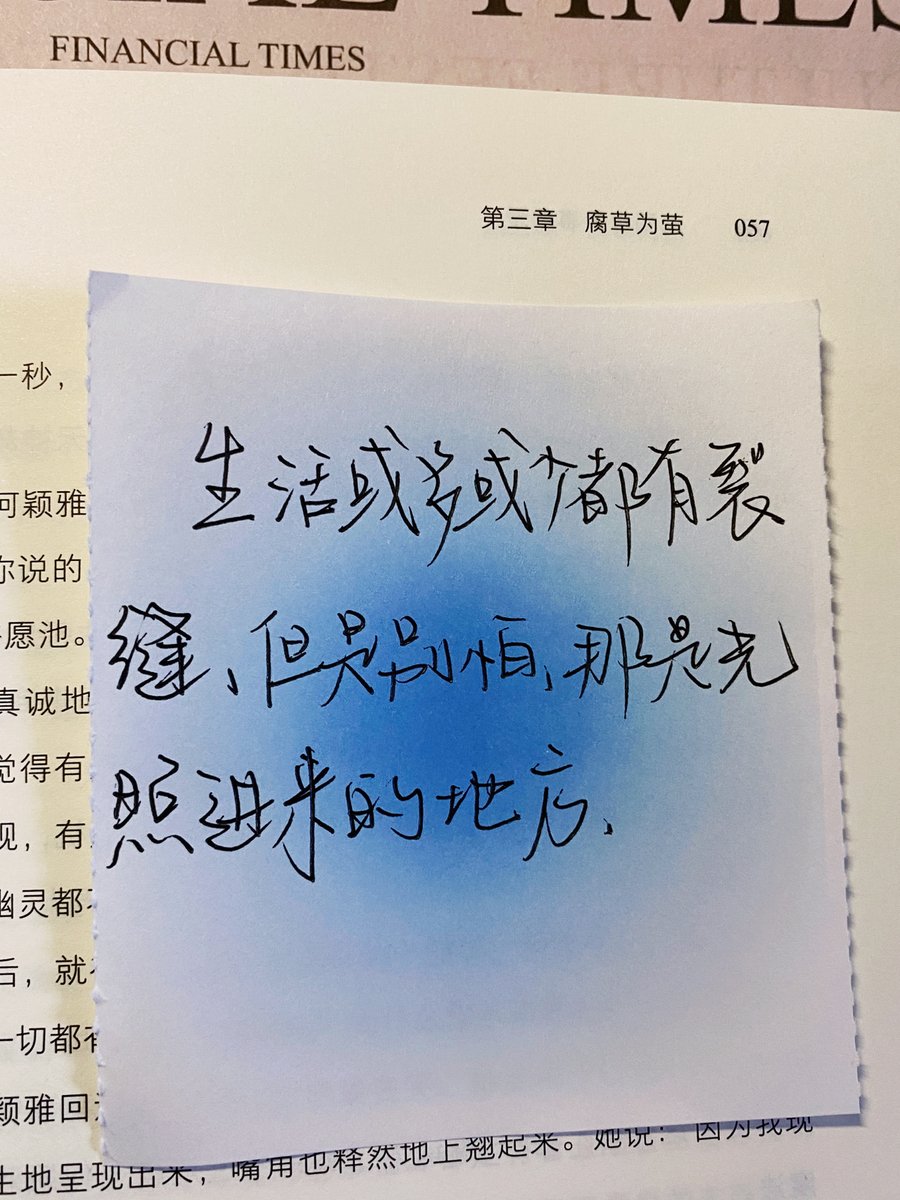 FINANCIAL TIMES
第三章 腐草为萤 057
一秒，
何颖雅
你说的
愿池。
真诚地
觉得有
现，有
幽灵都不
后，就
一切都有
颖雅回
生地呈现出来，嘴角也释然地上翘起来。她说：因为我现
生活或多或少都有裂
缝、但是别怕、那是光
照进来的地方、